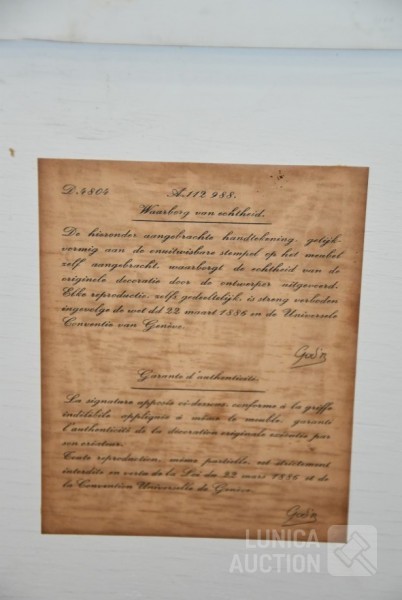 D.4804 A.112 988.
Waarborg van echtheid.
De hieronder aangebrachte handtekening, gelijk-
vormig aan de onuitwisbare stempel op het meubel
zelf aangebracht, waarborgt de echtheid van de
originele decoratie door de ontwerper uitgevoerd.
Elke reproductie, zelfs gedeeltelijk, is streng verboden
ingevolge de wet dd 22 maart 1886 en de Universele
Conventie van Genève.
Garantie d'authenticité.
La signature apposée ci-dessous, conforme à la griffe
indélébile appliquée à même le meuble, garanti
l'authenticité de la décoration originale exécutée par
son créateur.
Toute reproduction, même partielle, est strictement
interdite en vertu de la Loi du 22 mars 1886 et de
la Convention Universelle de Genève.
LUNICA
AUCTION